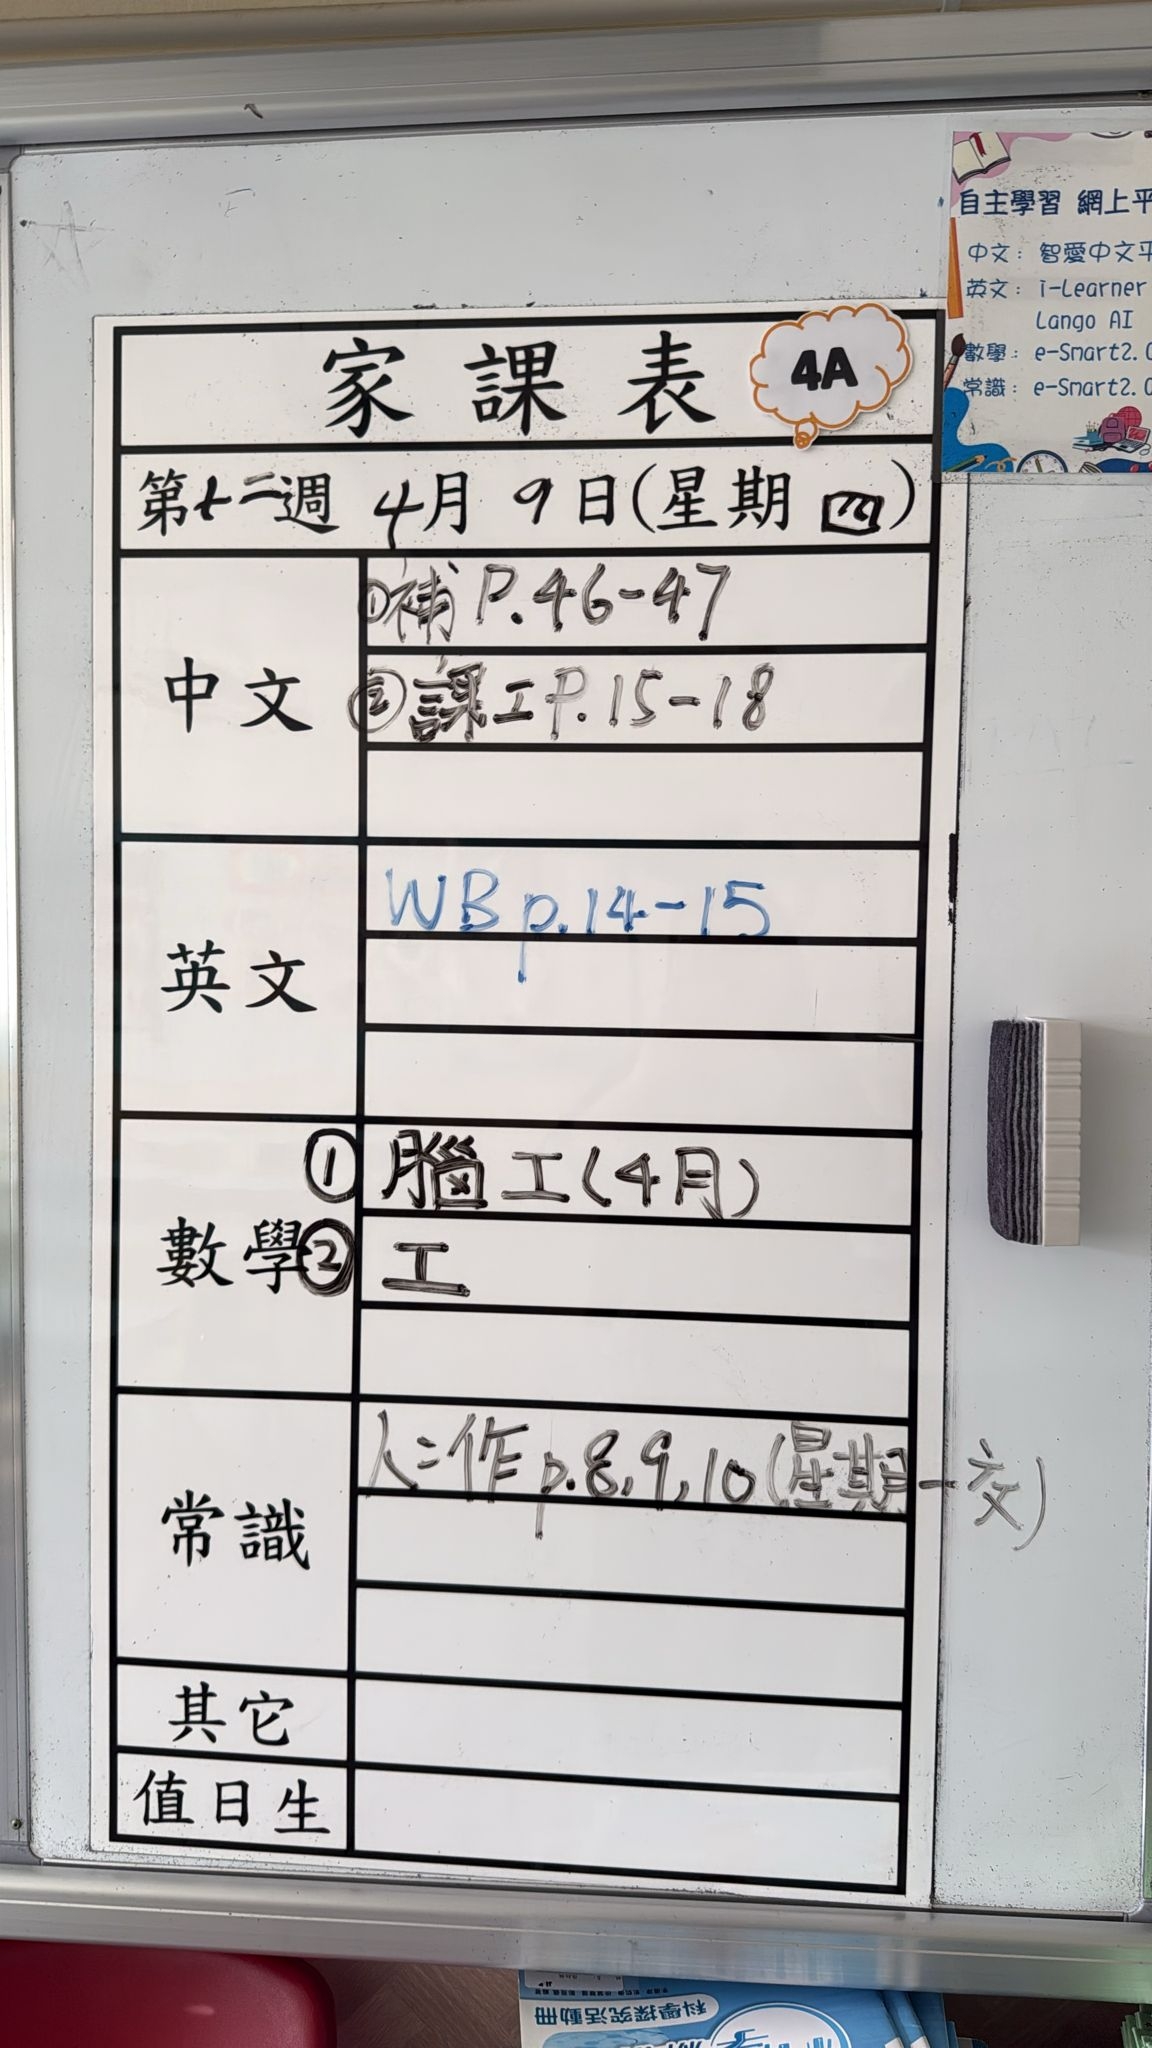 自主學習 網上平
中文：智愛中文平
英文：i-Learner
Lango AI
數學：e-Smart2.0
常識：e-Smart2.0
家課表
4A
第十二週 4月9日(星期四)
中文
①補P.46-47
②課工P.15-18
英文
WB p.14-15
數學
① 腦工(4月)
② 工
常識
人二作p.8,9,10(星期一交)
其它
值日生
科學探究活動冊